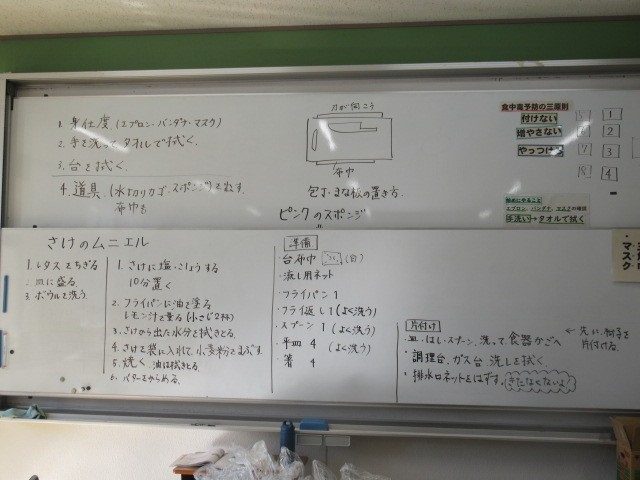 1. 身仕度（エプロン・バンダナ・マスク）
2. 手を洗ってタオルで拭く。
3. 台を拭く。
4. 道具（水切りカゴ、スポンジ）を出す。
布巾も
刃が向こう
布巾
包丁・まな板の置き方
ピンクのスポンジ
食中毒予防の三原則
付けない
増やさない
やっつける
5 1
6 2
7 3
8 4
始めにすること
手洗い→タオルで拭く
さけのムニエル
1. レタスをちぎる
2. 皿に盛る
3. ボウルを洗う
1. さけに塩・こしょうする
10分置く
2. フライパンに油を塗る
レモン汁を量る（小さじ2杯）
3. さけから出た水分を拭きとる
4. さけを袋に入れて、小麦粉をまぶす
5. 焼く 油は拭きとる
6. バターをからめる
準備
・台布巾 （白）
・流し用ネット
・フライパン 1
・フライ返し 1（よく洗う）
・スプーン 1（よく洗う）
・平皿 4（よく洗う）
・箸 4
片付け
・皿・はし・スプーン、洗って食器かごへ
・調理台、ガス台 流しを拭く。
・排水口ネットをはずす。 きたなくないよ!
← 先に椅子を
片付ける。
マスク